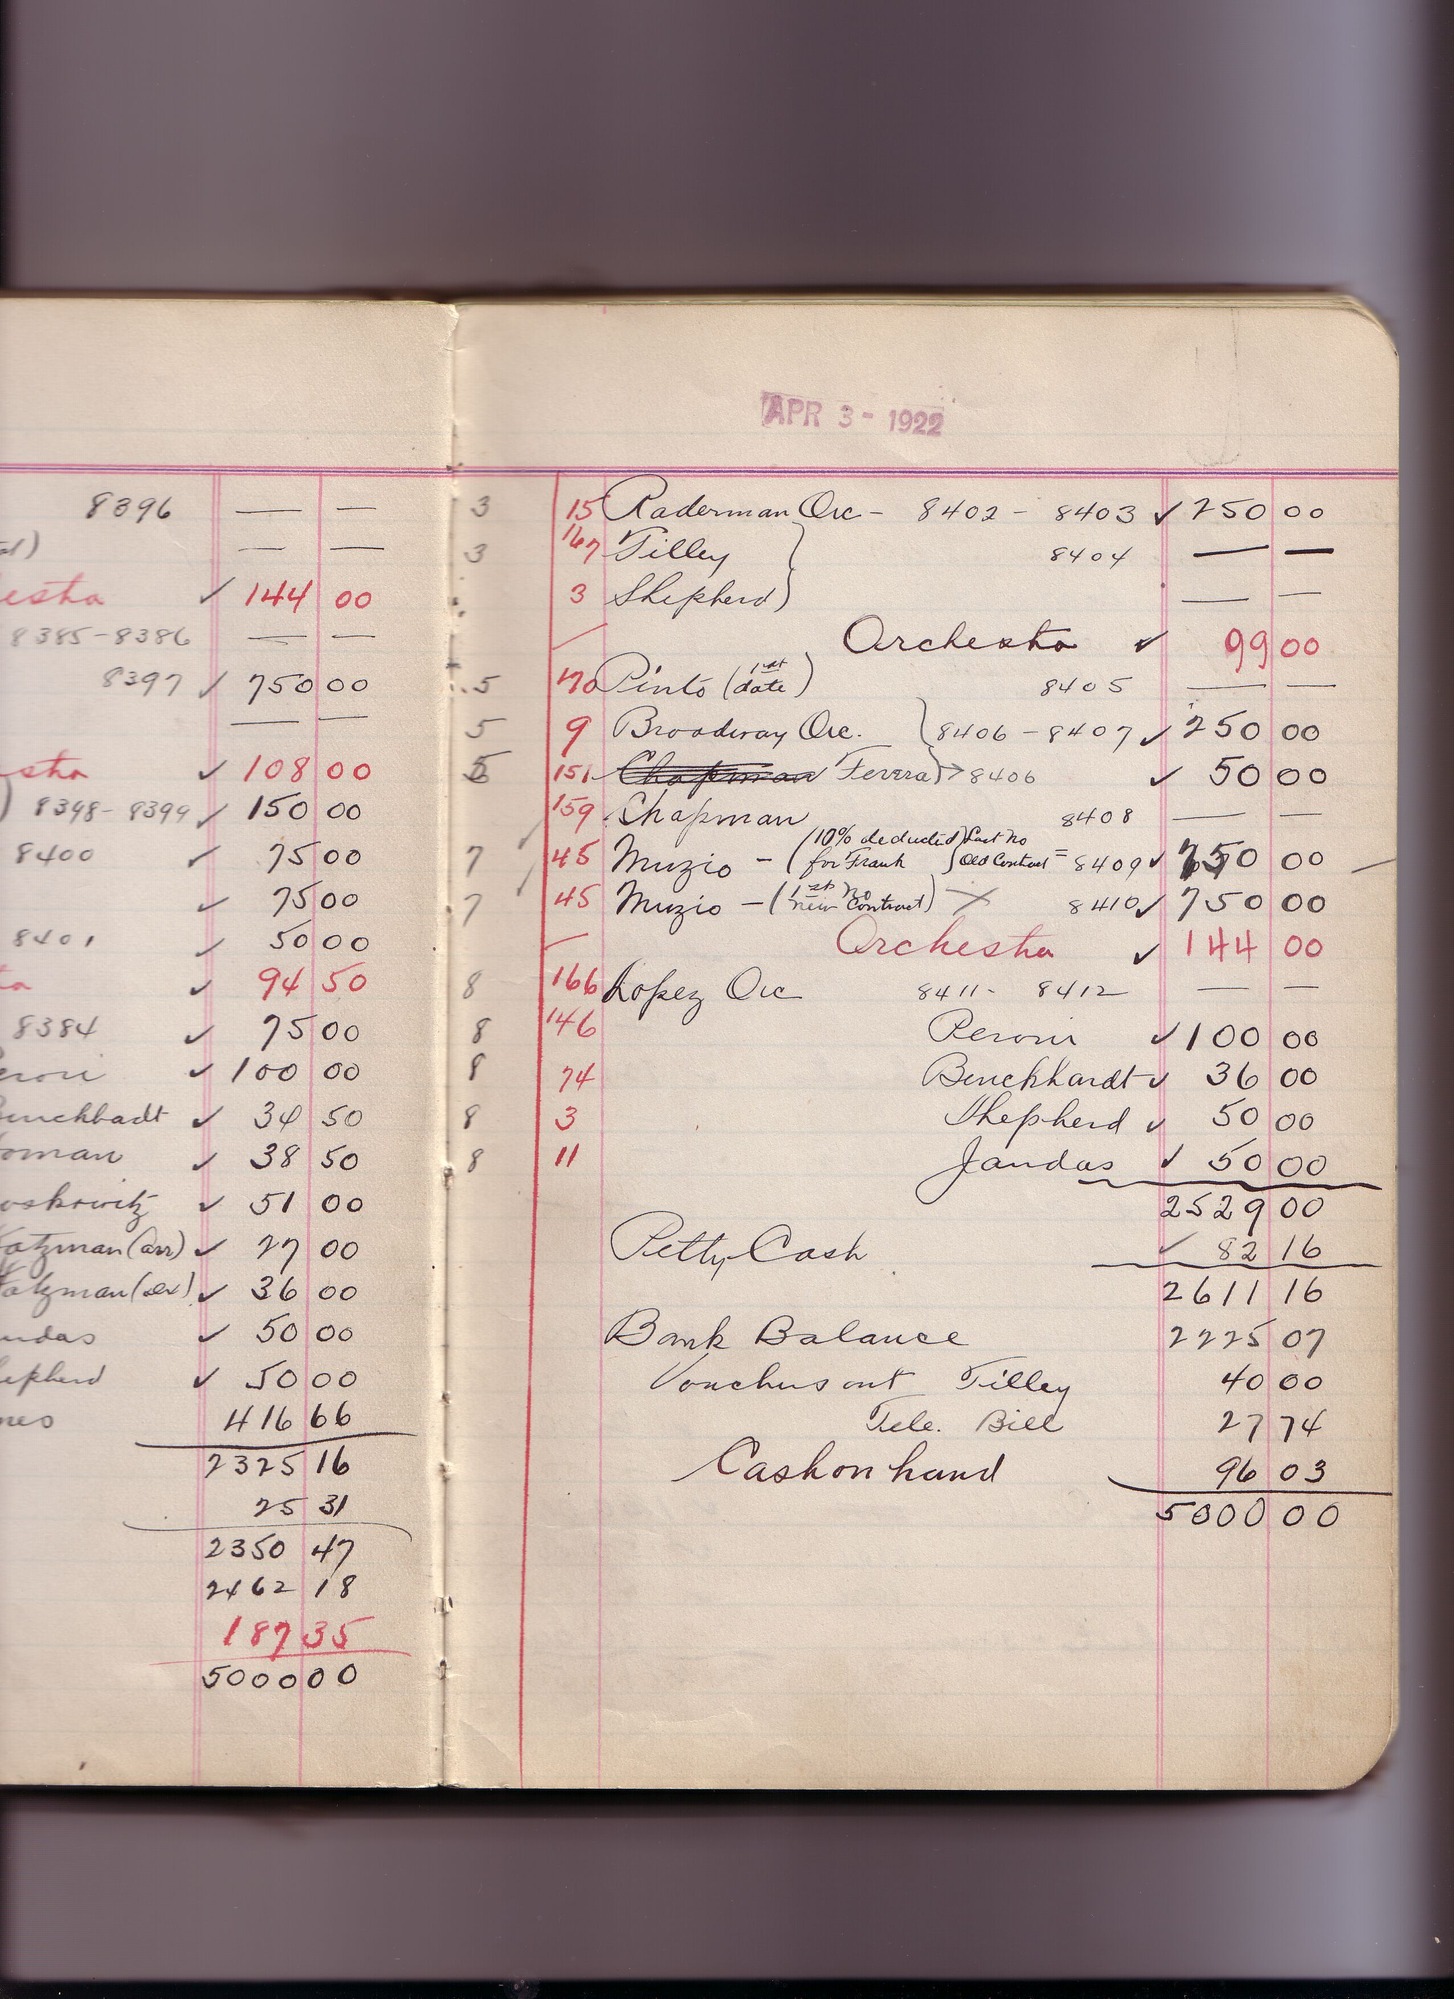 8396 — —
— —
✓ 144 00
8385-8386 — —
8397 ✓ 750 00
— —
✓ 108 00
) 8398-8399 ✓ 150 00
8400 ✓ 75 00
✓ 75 00
8401 ✓ 50 00
✓ 94 50
8384 ✓ 75 00
✓ 100 00
✓ 34 50
oman ✓ 38 50
oskowitz ✓ 51 00
atzman (arr) ✓ 27 00
atzman ✓ 36 00
ndas ✓ 50 00
epherd ✓ 50 00
nes 416 66
2325 16
25 31
2350 47
2462 18
187 35
5000 00
APR 3 - 1922
3 15 Raderman Orc - 8402 - 8403 ✓ 250 00
3 167 Tilley } 8404 — —
3 Shepherd — —
Orchestra ✓ 99 00
5 170 Pinto (1st date) 8405 — —
5 9 Broadway Orc. } 8406 - 8407 ✓ 250 00
5 151 Chapman Ferera → 8406 ✓ 50 00
159 Chapman 8408 — —
7 45 Muzio - (10% deducted for Frank) Last No Old Contract = 8409 ✓ 750 00
7 45 Muzio - (1st No new Contract) X 8410 ✓ 750 00
Orchestra ✓ 144 00
8 166 Lopez Orc 8411 - 8412 — —
8 146 Peroni ✓ 100 00
8 74 Benckhardt ✓ 36 00
8 3 Shepherd ✓ 50 00
8 11 Jandas ✓ 50 00
2529 00
Petty Cash ✓ 82 16
2611 16
Bank Balance 2225 07
Vouchers out Tilley 40 00
Tele. Bill 27 74
Cash on hand 96 03
5000 00